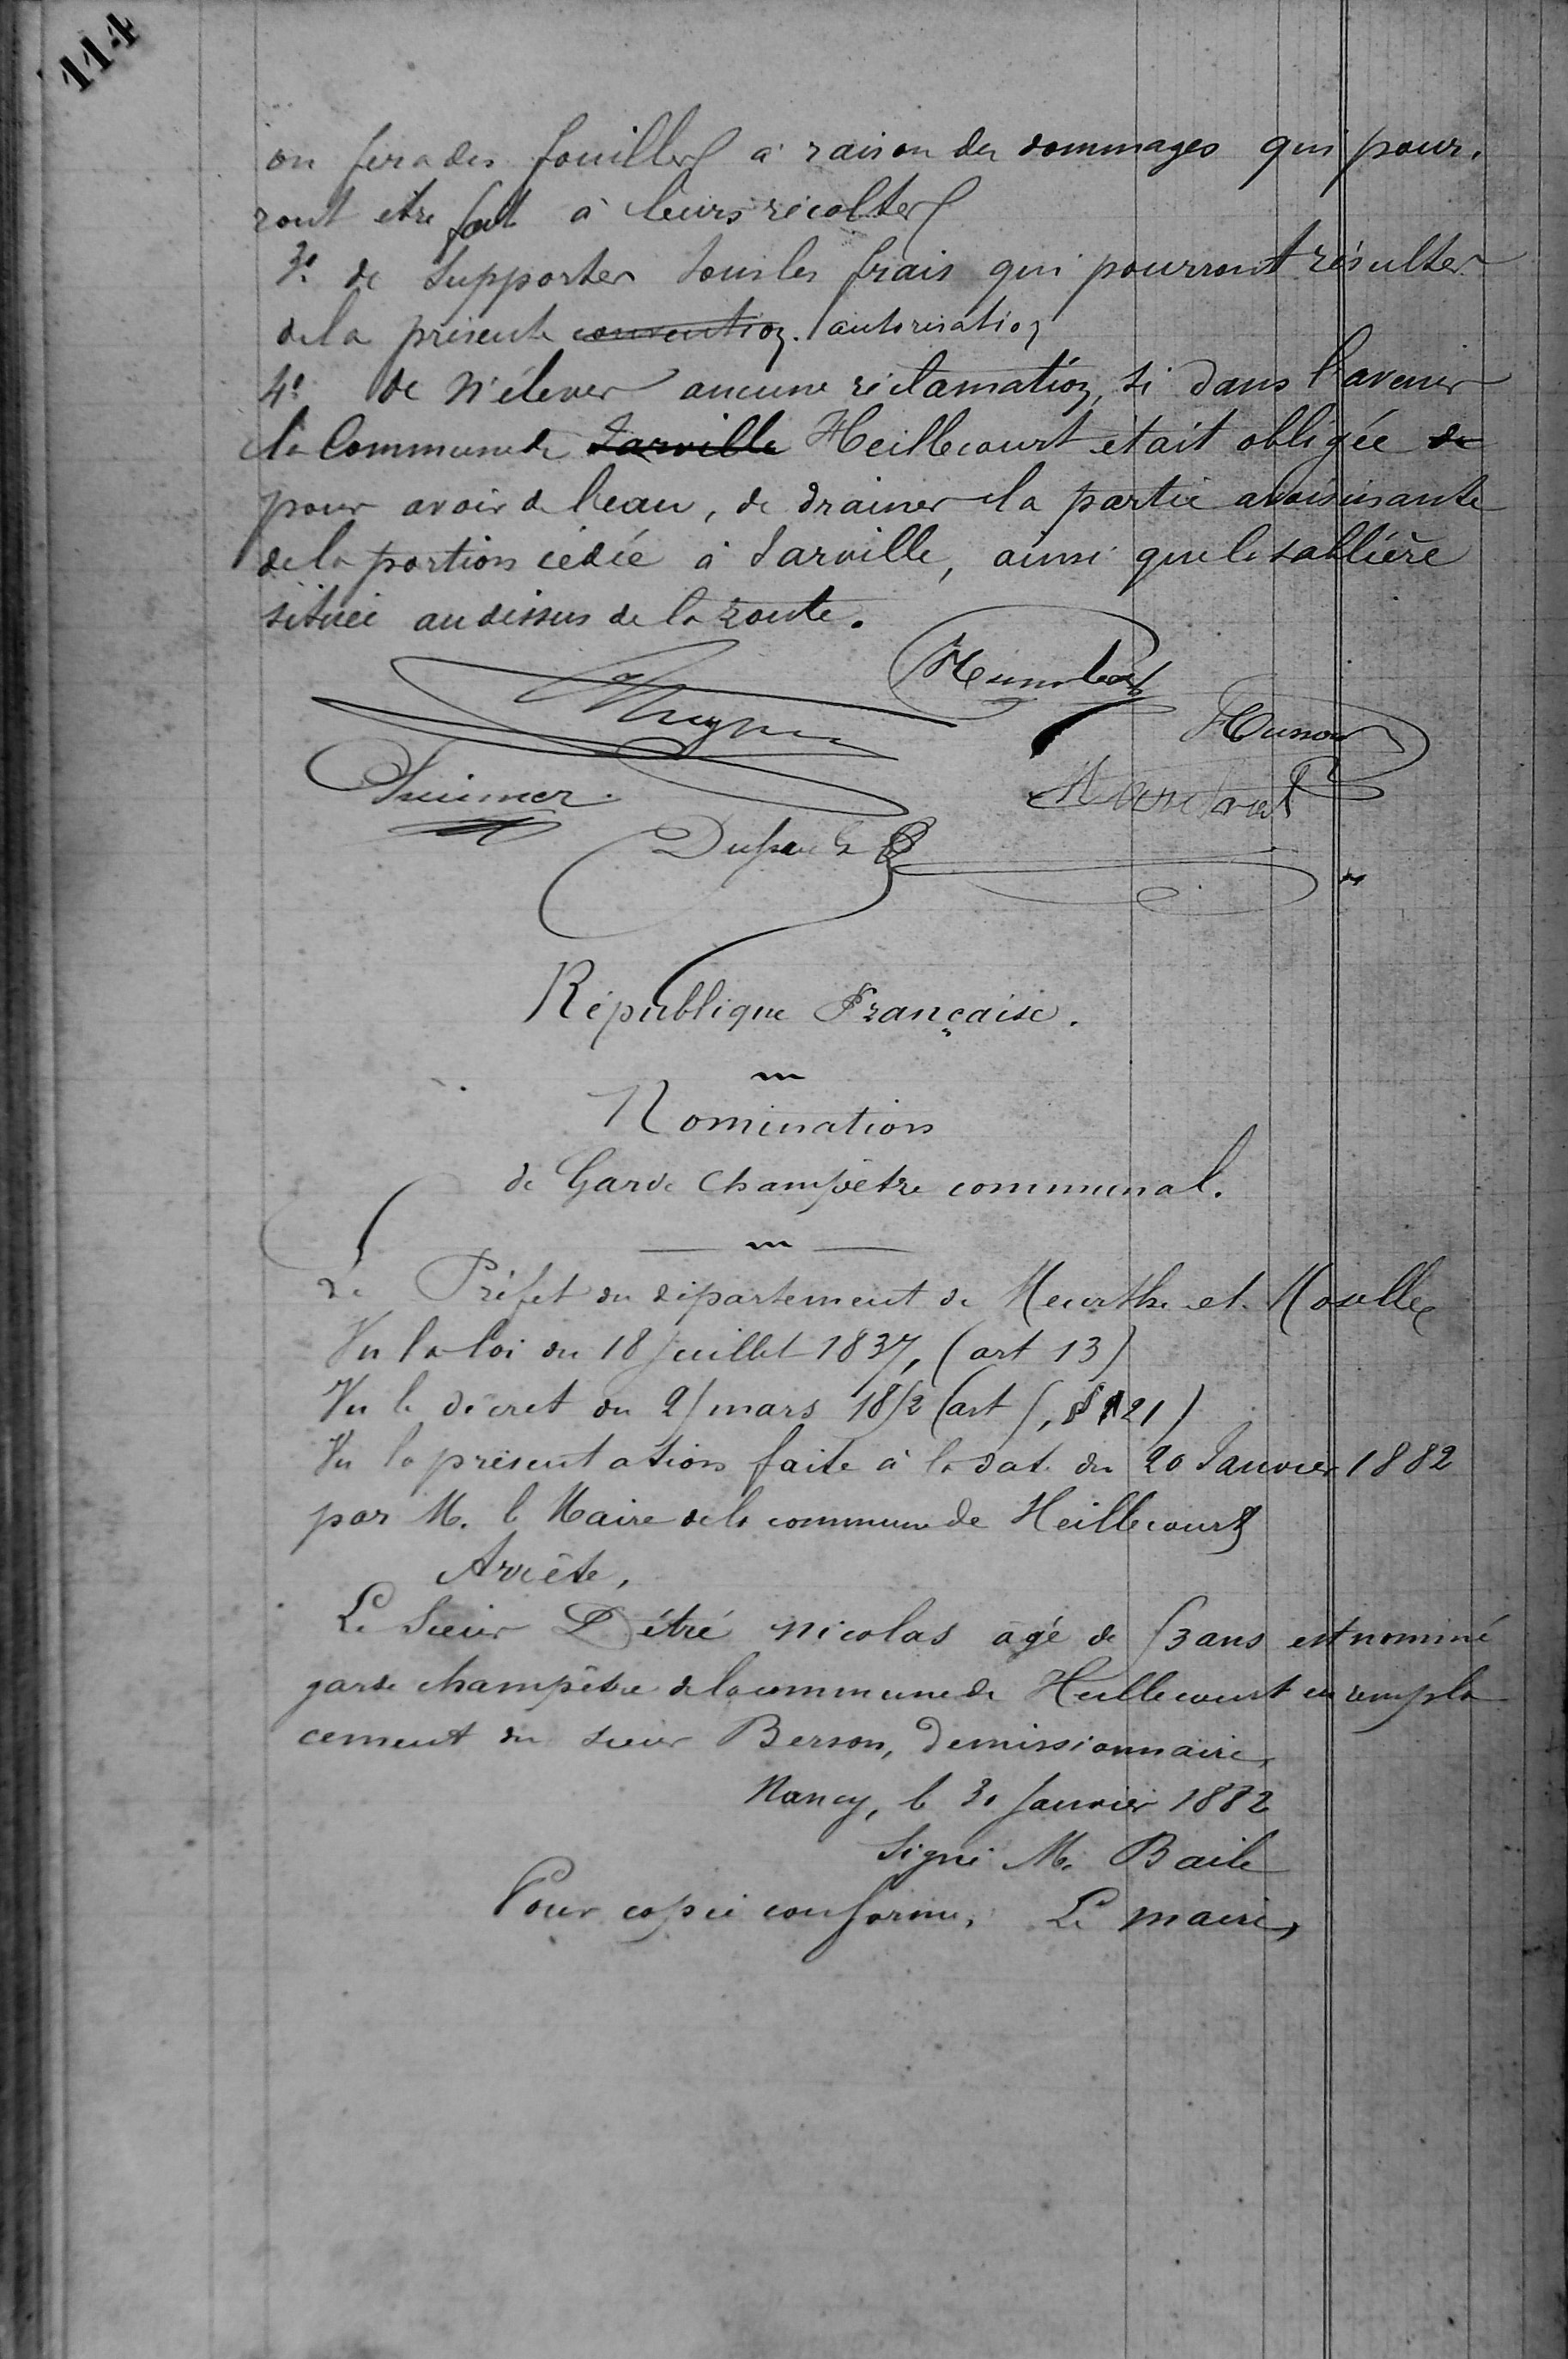 114
on fera des fouilles à raison des dommages qui pour.
ront etre fait à leurs récoltes
3° de Supporter tous les frais qui pourront résulter
de la présente convention. autorisation
4° de n'élever aucune réclamation, si dans l'avenir
la Commune de Jarville Heillecourt était obligée de
pour avoir de l'eau, de drainer la partie avoisinante
de la portion cédée à Jarville, ainsi que la sablière
située au dessus de la route.
Humbert
Husson
République Française.
Nomination
de Garde Champêtre communal.
Le Préfet du département de Meurthe et Moselle
Vu la loi du 18 Juillet 1837, (art 13)
Vu le décret du 25 mars 1852 (art 5, § 21)
Vu la présentation faite à la date du 20 Janvier 1882
par M. le Maire de la commune de Heillecourt
Arrête,
Le Sieur Détré Nicolas agé de 53 ans est nommé
garde champêtre de la commune de Heillecourt en rempla
cement du sieur Berson, démissionnaire,
Nancy, le 30 Janvier 1882
Signé M. Baile
Pour copie conforme, Le maire,